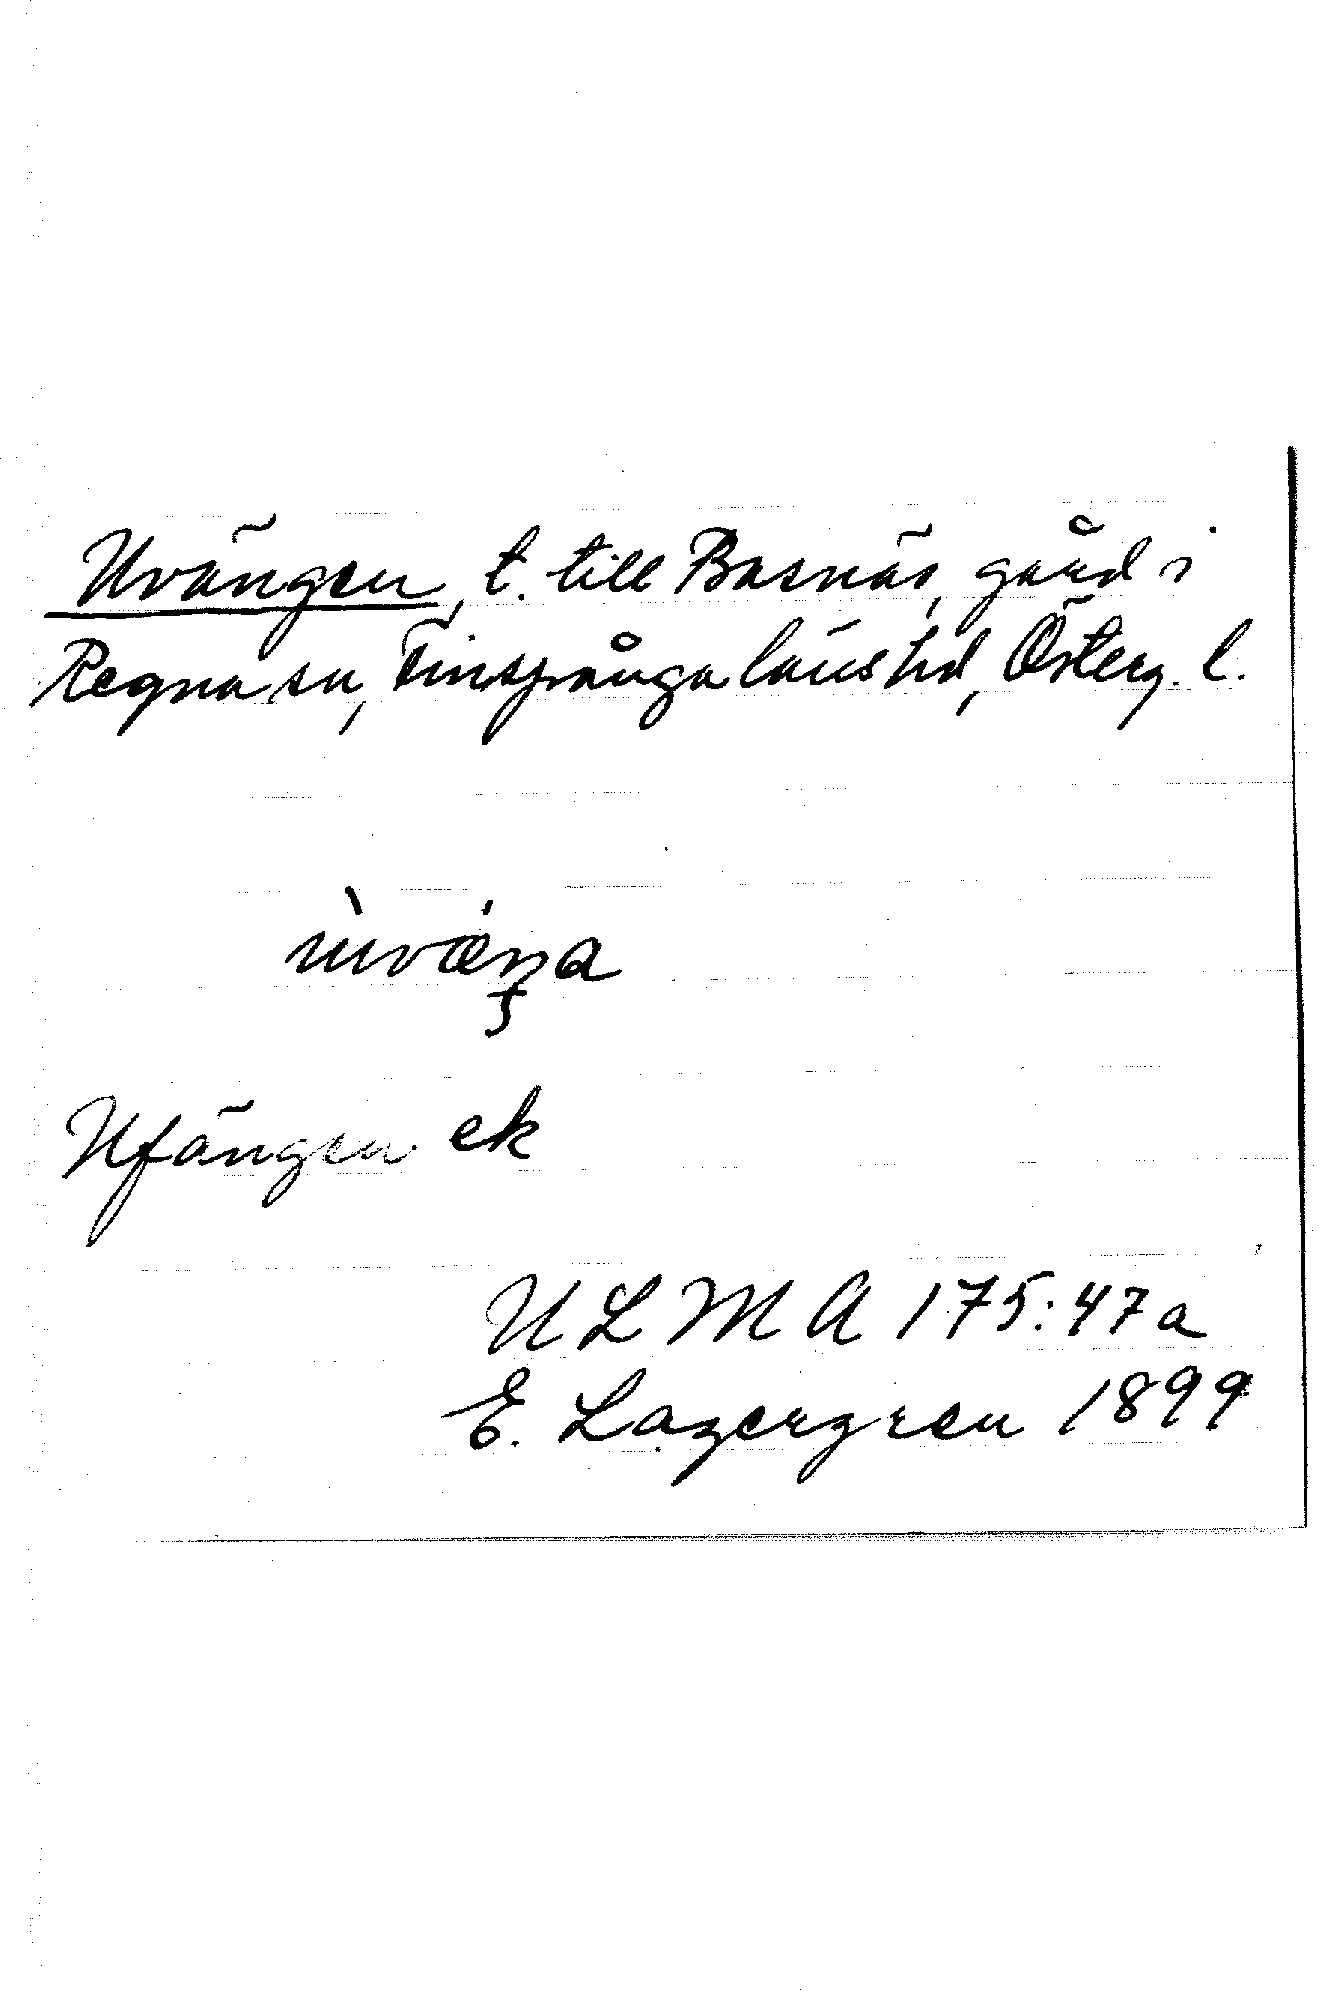 Uvängen, t. till Basnäs, gård i
Regna sn, Finspånga läns hd, Österg. l.
ùvǽŋa
Ufängen ek
ULMA 175:47a
E. Lagergren 1899